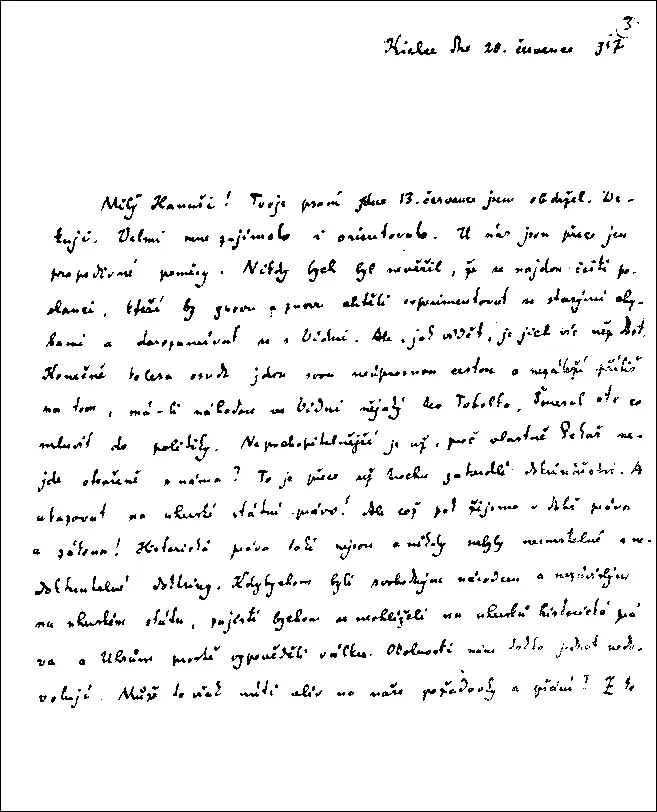 3.
dne 20. července 317
Milý Hanuši! Tvoje psaní dne 13. července jsem obdržel. Dě-
kuji. Velmi mne zajímalo i orientovalo. U nás jsou přece jen
prapodivné poměry. Nikdy bych byl nevěřil, že se najdou čeští po-
slanci, kteří by znovu a znovu chtěli experimentovat se starými chy-
bami a dorozumívat se s Vídní. Ale, jak vidět, je jich víc než dost.
Konečně kolesa osudu jdou svou neúprosnou cestou a nezáleží příliš
na tom, má-li náhodou ve Vídni nějaký Tobolka, Šmeral co
mluvit do politiky. Nepochopitelnější je už, proč vlastně Pekař ne-
jde otevřeně s náma? To je přece už trochu zatvrdlé doktrinářství. A
ukazovat na uherské státní právo! Ale což pak žijeme v době práva
a zákona! Historická práva také nejsou a nikdy nebyly nesmrtelné a ne-
dotknutelné doktriny. Kdybychom byli svobodným národem a nezávislým
na uherském státu, zajisté bychom se neohlíželi na uherská historická prá-
va a Uhrům prostě vypověděli válku. Okolnosti nám takto jednat nedo-
volují. Může to však míti vliv na naše požadavky a přání? Z to